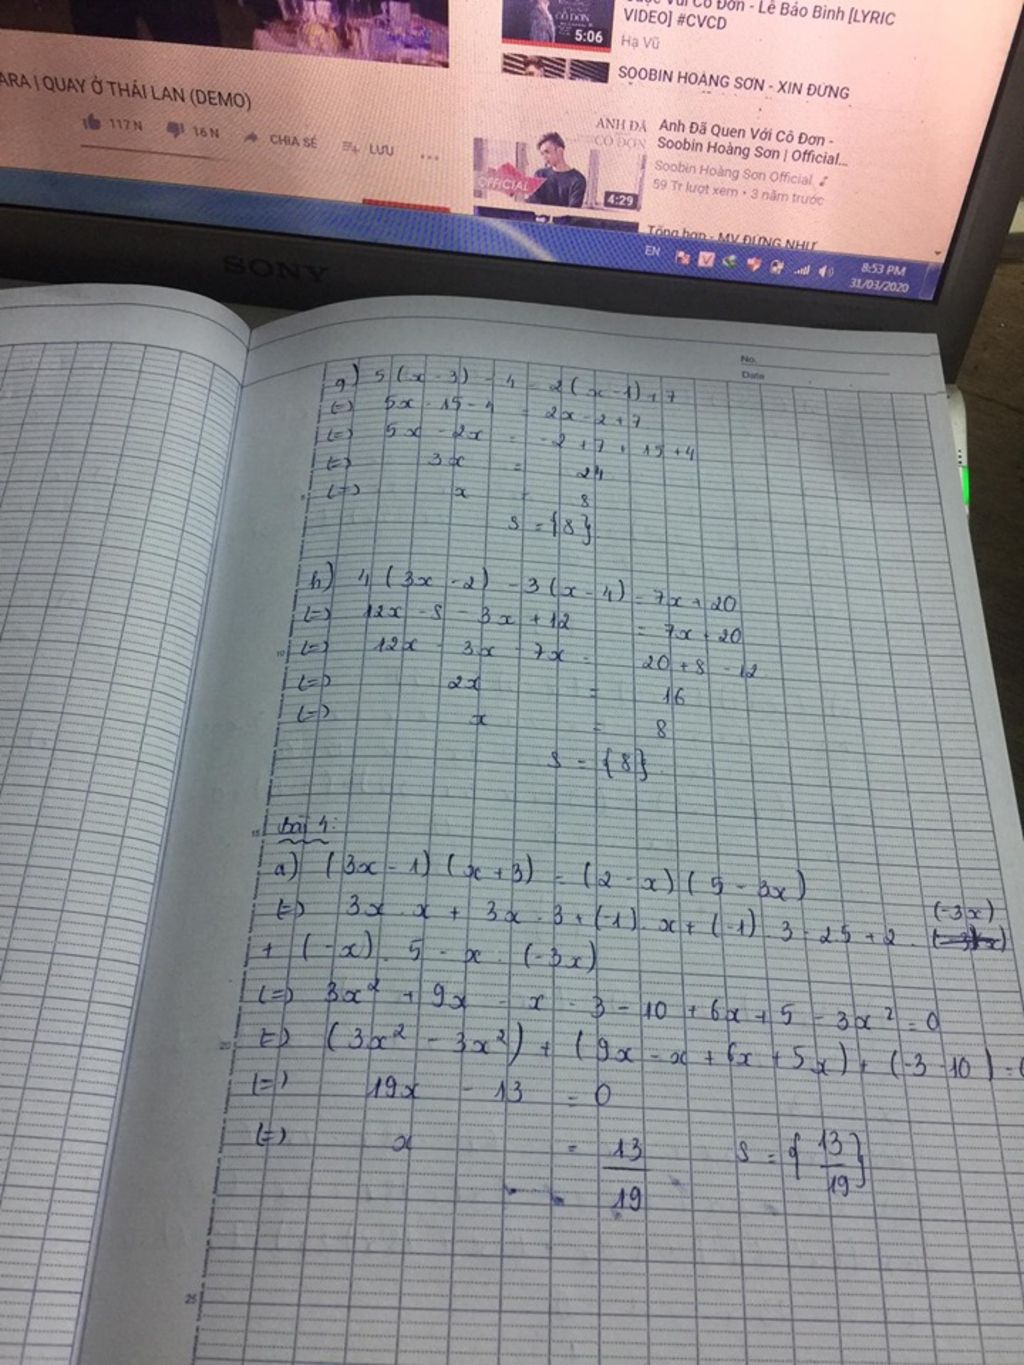 Cô Đơn - Lê Bảo Bình [LYRIC
VIDEO] #CVCD
5:06
Hạ Vũ
SOOBIN HOÀNG SƠN - XIN ĐỪNG
ARA | QUAY Ở THÁI LAN (DEMO)
117 N 16 N CHIA SẺ LƯU ...
ANH ĐÃ
CÔ ĐƠN
OFFICIAL
4:29
Anh Đã Quen Với Cô Đơn -
Soobin Hoàng Sơn | Official...
Soobin Hoàng Sơn Official
59 Tr lượt xem • 3 năm trước
Tổng hợp - MV ĐỪNG NHƯ
EN
8:53 PM
31/03/2020
SONY
No.
Date
g) 5(x - 3) - 4 = 2(x - 1) + 7
(=) 5x - 15 - 4 = 2x - 2 + 7
(=) 5x - 2x = -2 + 7 + 15 + 4
(=) 3x = 24
(=) x = 8
S = {8}
h) 4(3x - 2) - 3(x - 4) = 7x + 20
(=) 12x - 8 - 3x + 12 = 7x + 20
10 (=) 12x - 3x - 7x = 20 + 8 - 12
(=) 2x = 16
(=) x = 8
S = {8}
15 Bài 4:
a) (3x - 1)(x + 3) = (2 - x)(5 - 3x)
(=) 3x . x + 3x . 3 + (-1) . x + (-1) . 3 = 25 + 2 . (-3x)
+ (-x) . 5 - x . (-3x)
(=) 3x² + 9x - x - 3 - 10 + 6x + 5 - 3x² = 0
20 (=) (3x² - 3x²) + (9x - x + 6x + 5x) + (-3 - 10) =
(=) 19x - 13 = 0
(=) x = 13/19 S = {13/19}
25